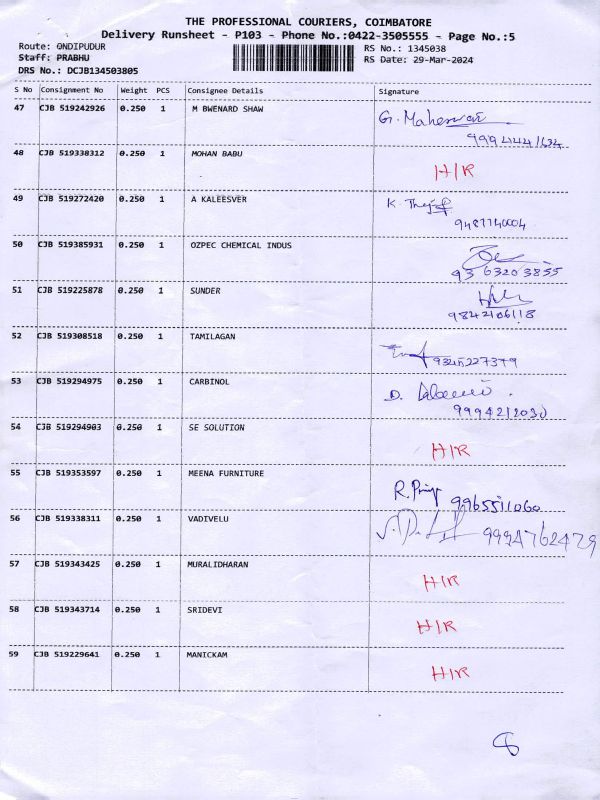 THE PROFESSIONAL COURIERS, COIMBATORE
Delivery Runsheet - P103 - Phone No.:0422-3505555 - Page No.:5
Route: ONDIPUDUR RS No.: 1345038
Staff: PRABHU RS Date: 29-Mar-2024
DRS No.: DCJB134503805
S No Consignment No Weight PCS Consignee Details Signature
47 CJB 519242926 0.250 1 M BWENARD SHAW G. Maheswari
48 CJB 519338312 0.250 1 MOHAN BABU H/R
49 CJB 519272420 0.250 1 A KALEESVER K.
9487740004
50 CJB 519385931 0.250 1 OZPEC CHEMICAL INDUS
9363203855
51 CJB 519225878 0.250 1 SUNDER
9842106118
52 CJB 519308518 0.250 1 TAMILAGAN 9345227379
53 CJB 519294975 0.250 1 CARBINOL D.
9994212030
54 CJB 519294903 0.250 1 SE SOLUTION H/R
55 CJB 519353597 0.250 1 MEENA FURNITURE R. Priya 9965511060
56 CJB 519338311 0.250 1 VADIVELU 9994762479
57 CJB 519343425 0.250 1 MURALIDHARAN H/R
58 CJB 519343714 0.250 1 SRIDEVI H/R
59 CJB 519229641 0.250 1 MANICKAM H/R
8